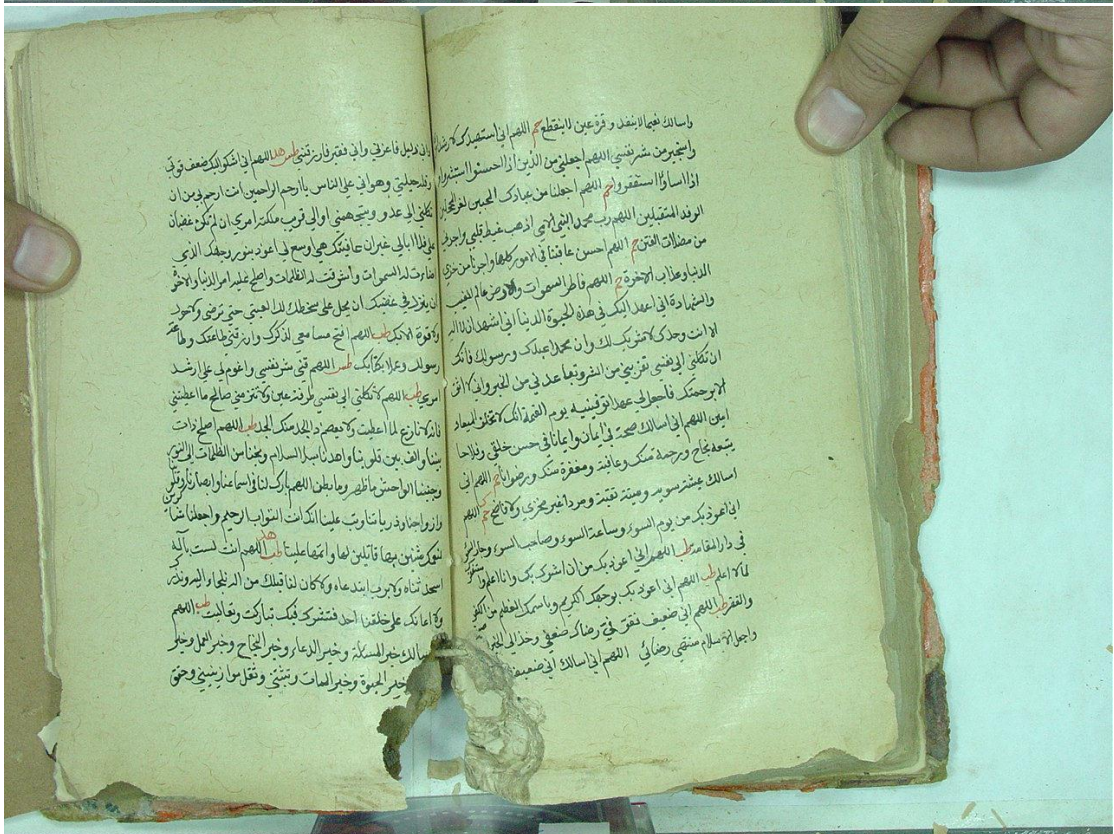 واسالك نعيما لا ينفد وقرة عين لا ينقطع حم اللهم اني استهديك لارشد
واستجير من شر نفسي اللهم اجعلني من الذين اذا احسنوا استبشروا و
اذا اساؤا استغفروا حم اللهم اجعلنا من عبادك المخبتين الغر المحجلين
الوفد المتقبلين اللهم رب محمد النبي الامي اذهب غيظ قلبي واجرني
من مضلات الفتن حم اللهم احسن عاقبتنا في الامور كلها واجرنا من خزي
الدنيا وعذاب الاخرة حم اللهم فاطر السموات والارض عالم الغيب
والشهادة اني اعهد اليك في هذه الحيوة الدنيا اني اشهد ان لا اله
الا انت وحدك لا شريك لك وان محمدا عبدك ورسولك فانك
ان تكلني الى نفسي تقربني من الشر وتباعدني من الخير واني لا اثق
الا برحمتك فاجعل لي عهدا توفينيه يوم القيمة انك لا تخلف الميعاد
امين اللهم اني اسالك صحة في ايمان وايمانا في حسن خلق وفلاحا
يتبعه نجاح ورحمة منك وعافية ومغفرة منك ورضوانا حم اللهم اني
اسالك عيشة سوية وميتة تقية ومردا غير مخزي ولا فاضح حم اللهم
اني اعوذ بك من يوم السوء وساعة السوء وصاحب السوء وجار السوء
في دار المقامة طب اللهم اني اعوذ بك من ان اشرك بك وانا اعلم واستغفرك
لما لا اعلم طب اللهم اني اعوذ بك بوجهك الكريم وباسمك العظيم من الكفر
والفقر طر اللهم اني ضعيف فقو في رضاك ضعفي وخذ الى الخير
واجعل الاسلام منتهى رضائي اللهم اني اسالك اني ضعيف
واني ذليل فاعزني واني فقير فارزقني طس هد اللهم اني اشكو اليك ضعف قوتي
وقلة حيلتي وهواني على الناس يا ارحم الراحمين انت ارحم بي من ان
تكلني الى عدو يتجهمني او الى قريب ملكته امري ان لم تكن غضبان
علي فلا ابالي غير ان عافيتك هي اوسع لي اعوذ بنور وجهك الذي
اضاءت له السموات واشرقت له الظلمات واصلح عليه امر الدنيا والاخرة
ان ينزل في غضبك ان يحل علي سخطك لك العتبى حتى ترضى ولا حول
ولا قوة الا بك طب اللهم افتح مسامعي لذكرك وارزقني طاعتك وطاعة
رسولك وعملا بكتابك طس اللهم قني شر نفسي واعزم لي على ارشد
امري طب اللهم لا تكلني الى نفسي طرفة عين ولا تنزع مني صالح ما اعطيتني
فانه لا نازع لما اعطيت ولا يعصم ذا الجد منك الجد طب اللهم اصلح ذات
بيننا والف بين قلوبنا واهدنا سبل السلام ونجنا من الظلمات الى النور
وجنبنا الفواحش ما ظهر وما بطن اللهم بارك لنا في اسماعنا وابصارنا وقلوبنا
وازواجنا وذرياتنا وتب علينا انك انت التواب الرحيم واجعلنا شاكرين
لنعمك مثنين بها قائلين لها واتمها علينا طب هد اللهم انت لست باله
استحدثناه ولا برب ابتدعناه ولا كان لنا قبلك من اله نلجاء اليه ونذرك
ولا اعانك على خلقنا احد فنشركه فيك تباركت وتعاليت طب اللهم
اسالك خير المسئلة وخير الدعاء وخير النجاح وخير العمل وخير
وخير الحيوة وخير الممات وثبتني وثقل موازيني وحقق